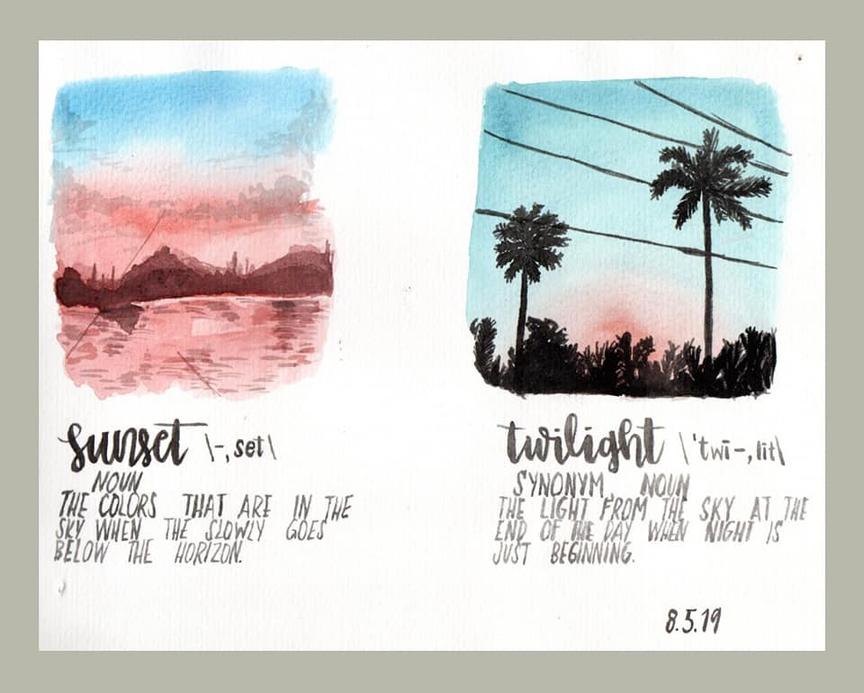 sunset \-,set\
NOUN
THE COLORS THAT ARE IN THE
SKY WHEN THE SLOWLY GOES
BELOW THE HORIZON.
twilight \'twī-,līt\
SYNONYM, NOUN
THE LIGHT FROM THE SKY AT THE
END OF THE DAY WHEN NIGHT IS
JUST BEGINNING.
8.5.19